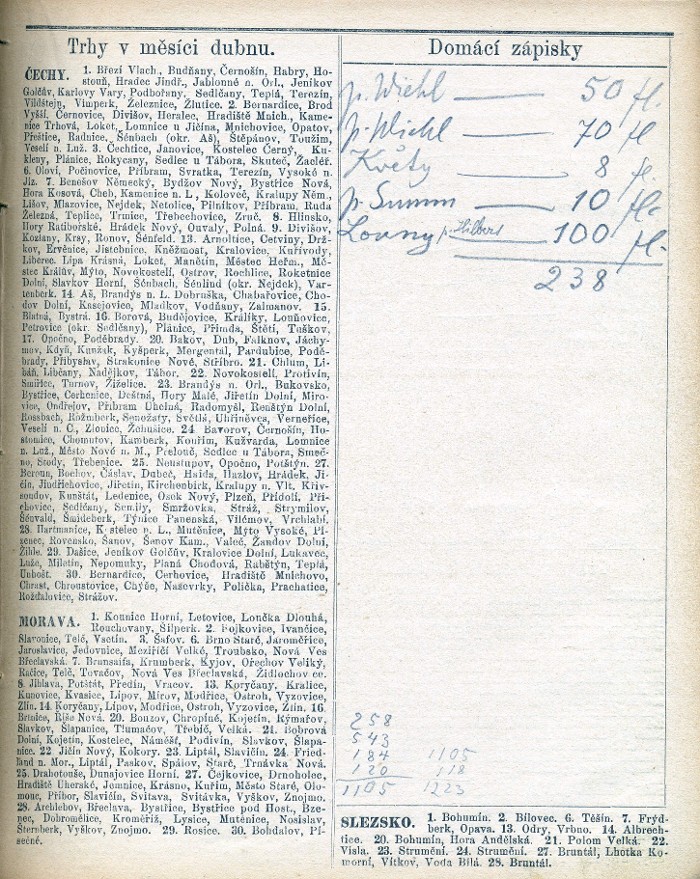 Trhy v měsíci dubnu.
ČECHY. 1. Březí Vlach., Budňany, Černošín, Habry, Ho-
stouň, Hradec Jindř., Jablonné n. Orl., Jeníkov
Golčův, Karlovy Vary, Podbořany, Sedlčany, Teplá, Terezín,
Vildštejn, Vimperk, Železnice, Žlutice. 2. Bernardice, Brod
Vyšší. Černovice, Divišov, Heralec, Hradiště Mnich., Kame-
nice Trhová, Loket, Lomnice u Jičína, Mnichovice, Opatov,
Přeštice, Radnice, Šénbach (okr. Aš), Štěpánov, Toužim,
Veselí n. Luž. 3. Čechtice, Janovice, Kostelec Černý, Ku-
kleny, Plánice, Rokycany, Sedlec u Tábora, Skuteč, Žacléř.
6. Olovi, Počinovice, Příbram, Svratka, Terezín, Vysoké n.
Jiz. 7. Benešov Německý, Bydžov Nový, Bystřice Nová,
Hora Kosová, Cheb, Kamenice n. L., Koloveč, Kralupy Něm.,
Lišov, Mlazovice, Nejdek, Netolice, Pilníkov, Příbram, Ruda
Železná, Teplice, Trmice, Třebechovice, Zruč. 8. Hlinsko,
Hory Ratibořské, Hrádek Nový, Ouvaly, Polná. 9. Divišov,
Kozlany, Kray, Ronov, Šénfeld. 13. Arnoltice, Cetviny, Drž-
kov, Ervěnice, Jistebnice, Kněžmost, Kralovice, Kuřívody,
Liberec, Lípa Krásná, Loket, Manětín, Městec Heřm., Mě-
stec Králův, Mýto, Novokostelí, Ostrov, Rochlice, Roketnice
Dolní, Slavkov Horní, Šénbach, Šénlind (okr. Nejdek), Var-
tenberk. 14. Aš, Brandýs n. L. Dobruška, Chabařovice, Cho-
dov Dolní, Kasejovice, Mladkov, Vodňany, Zalmanov. 15.
Blatná, Bystrá. 16. Borová, Budějovice, Králíky, Louňovice,
Petrovice (okr. Sedlčany), Plánice, Přimda, Štětí, Tuškov.
17. Opočno, Poděbrady. 20. Bakov, Dub, Falknov, Jáchy-
mov, Kdyň, Kunžak, Kyšperk, Mergental, Pardubice, Podě-
brady, Přibyslav, Strakonice Nové, Stříbro. 21. Chlum, Li-
báň, Libčany, Nadějkov, Tábor. 22. Novokostelí, Protivín,
Smiřice, Turnov, Žiželice. 23. Brandýs n. Orl., Bukovsko,
Bystřice, Cerhenice, Deštná, Hory Malé, Jiřetín Dolní, Miro-
vice, Ondřejov, Příbram Uhelná, Radomyšl, Renštýn Dolní,
Rossbach, Rožmberk, Senožaty, Světlá, Uhříněves, Verneřice,
Veselí n. C., Zlonice, Žehušice. 24. Bavorov, Černošín, Ho-
stomice, Chomutov, Kamberk, Kouřim, Kužvarda, Lomnice
n. Luž., Město Nové n. M., Přelouč, Sedlec u Tábora, Smeč-
no, Stody, Třebenice. 25. Neustupov, Opočno, Potštýn. 27.
Beroun, Bochov, Čáslav, Dubeč, Haida, Hazlov, Hrádek, Ji-
čín, Jindřichovice, Jiřetín, Kirchenbirk, Kralupy n. Vlt., Křiv-
soudov, Kunštát, Ledenice, Osek Nový, Plzeň, Přídolí, Při-
chovice, Sedlčany, Semily, Smržovka, Stráž, Strymilov,
Šénvald, Šmideberk, Týnice Panenská, Vilémov, Vrchlabí.
28. Hartmanice, Kostelec n. L., Mutěnice, Mýto Vysoké, Pí-
senec, Rovensko, Šanov, Šenov Kam., Valeč, Žandov Dolní,
Žihle. 29. Dašice, Jeníkov Golčův, Kralovice Dolní, Lukavec,
Luže, Miletín, Nepomuky, Planá Chodová, Rabštýn, Teplá,
Unhošť. 30. Bernardice, Cerhovice, Hradiště Mnichovo,
Chrast, Chroustovice, Chýše, Nasevrky, Polička, Prachatice,
Rožďalovice, Strážov.
MORAVA. 1. Kounice Horní, Letovice, Lončka Dlouhá,
Rouchovany, Šilperk. 2. Bojkovice, Ivančice,
Slavonice, Telč, Vsetín. 3. Šafov. 6. Brno Staré, Jaroměřice,
Jaroslavice, Jedovnice, Meziříčí Velké, Troubsko, Nová Ves
Břeclavská. 7. Brunsaifa, Krumberk, Kyjov, Ořechov Veliký,
Račice, Telč, Tovačov, Nová Ves Břeclavská, Židlochov ce.
8. Jihlava, Potštát, Předín, Vracov. 13. Koryčany, Kralice,
Kunovice, Kvasice, Lipov, Mirov, Modřice, Ostroh, Vyzovice,
Zlín. 14. Koryčany, Lipov, Modřice, Ostroh, Vyzovice, Zlín. 16.
Brtnice, Říše Nová. 20. Bouzov, Chropině, Kojetín, Rýmařov,
Slavkov, Šlapanice, Tlumačov, Třebíč, Velká. 21. Bobrová
Dolní, Kojetín, Kostelec, Náměšť, Podivín, Slavkov, Šlapa-
nice. 22. Jičín Nový, Kokory. 23. Liptál, Slavičín. 24. Fried-
land n. Mor., Liptál, Paskov, Spálov, Staré, Trnávka Nová.
25. Drahotouše, Dunajovice Horní. 27. Čejkovice, Drnholec,
Hradiště Uherské, Jemnice, Krásno, Kuřim, Město Staré, Olo-
mouc, Příbor, Slavičín, Svitava, Svitávka, Vyškov, Znojmo.
28. Archlebov, Břeclava, Bystřice, Bystřice pod Host., Bze-
nec, Dobromělice, Kroměříž, Lysice, Mutěnice, Nosislav,
Šternberk, Vyškov, Znojmo. 29. Rosice. 30. Bohdalov, Pí-
sečné.
Domácí zápisky
p. Wiehl — 50 fl.
p. Wiehl — 70 fl
Květy — 8 fl.
p. Summ — 10 fl.
100 fl.
238
258
543
184 1105
120 118
1105 1223
SLEZSKO. 1. Bohumín. 2. Bílovec. 6. Těšín. 7. Frýd-
berk, Opava. 13. Odry, Vrbno. 14. Albrech-
tice. 20. Bohumín, Hora Andělská. 21. Polom Velká. 22.
Visla. 23. Strumění. 24. Strumění. 27. Bruntál, Lhotka Ko-
morní, Vítkov, Voda Bílá. 28. Bruntál.